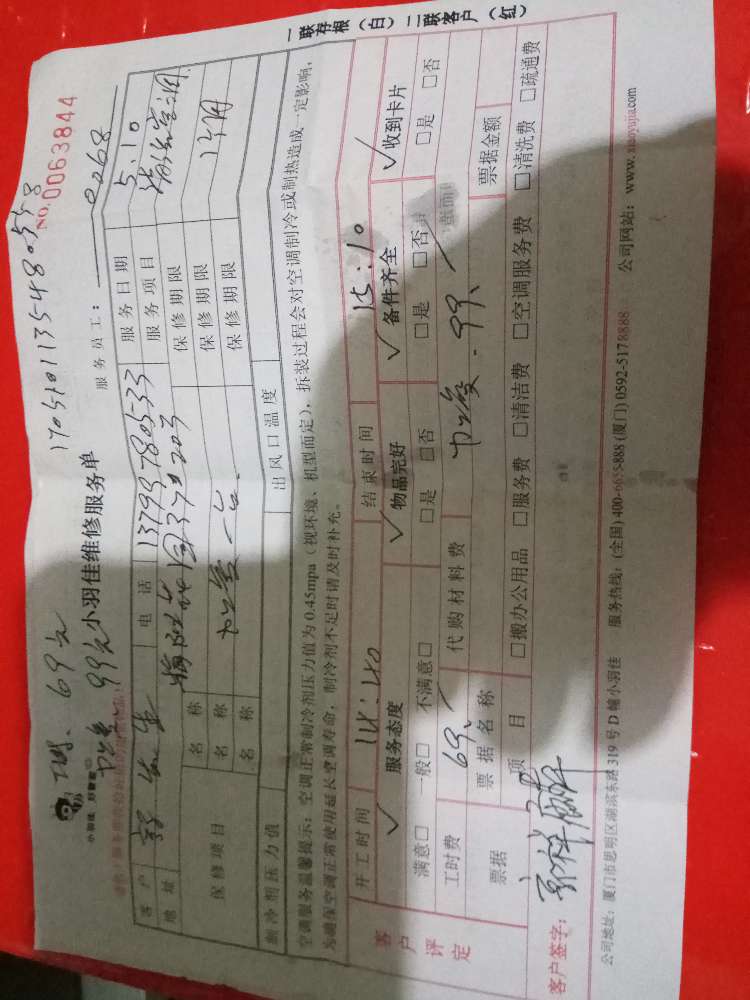 170510113548055号
NO.0063844
69元
99元
小羽佳维修服务单
服务员工：
2068
客户
电话
13799780533
服务日期
5.10
地址
服务项目
保修项目
名称
保修期限
名称
保修期限
名称
保修期限
制冷剂压力值
出风口温度
空调服务温馨提示：空调正常制冷剂压力值为0.45mpa（视环境、机型而定），拆装过程会对空调制冷或制热造成一定影响，
为确保空调正常使用延长空调寿命，制冷剂不足时请及时补充。
一联存根（白）二联客户（红）
客户评定
开工时间
14:40
结束时间
15:10
服务态度
物品完好
备件齐全
收到卡片
满意□ 一般□ 不满意□
□是 □否
□是 □否
□是 □否
工时费
69.
代购材料费
99.
票据
票据名称
票据金额
项目
□搬办公用品 □服务费 □清洁费 □空调服务费 □清洗费 □疏通费
客户签字：
公司地址：厦门市思明区湖滨东路319号D幢小羽佳 服务热线：(全国)400-6655-888 (厦门)0592-5178888 公司网站：www.xiaoyujia.com